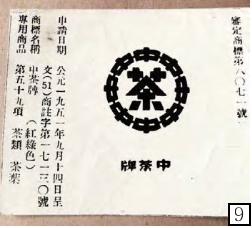 審定商標第六〇七一號
茶
中中中中中中中中
中茶牌
申請日期 公元一九五一年九月十四日呈
文(51)商註字第一七一三〇號
商標名稱 中茶牌 (紅綠色)
專用商品 第五十九項 茶類 茶葉
9